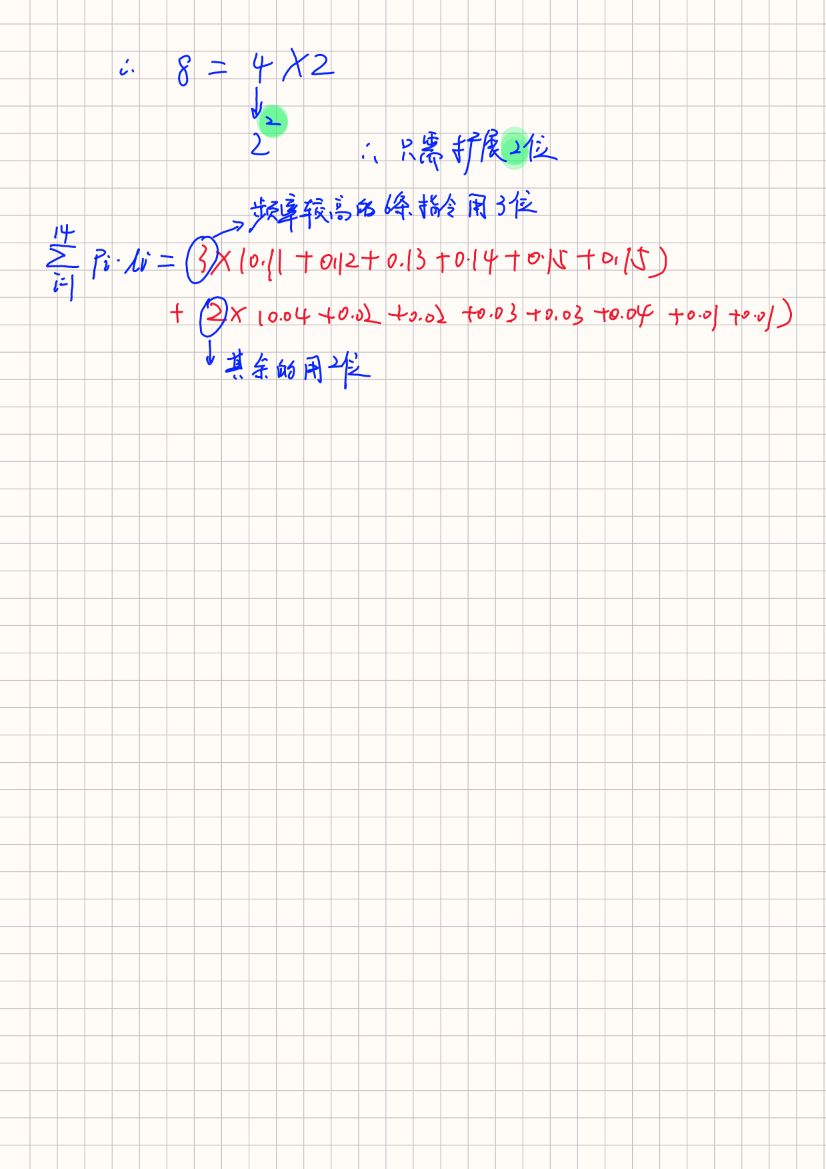 ∴ 8 = 4 × 2
↓
2² ∴ 只需扩展2位
→ 频率较高的6条指令用3位
∑_{i=1}^{14} Pi·li = 3×(0.11 + 0.12 + 0.13 + 0.14 + 0.15 + 0.15)
+ 2× (0.04 + 0.02 + 0.02 + 0.03 + 0.03 + 0.04 + 0.01 + 0.01)
↓ 其余的用2位